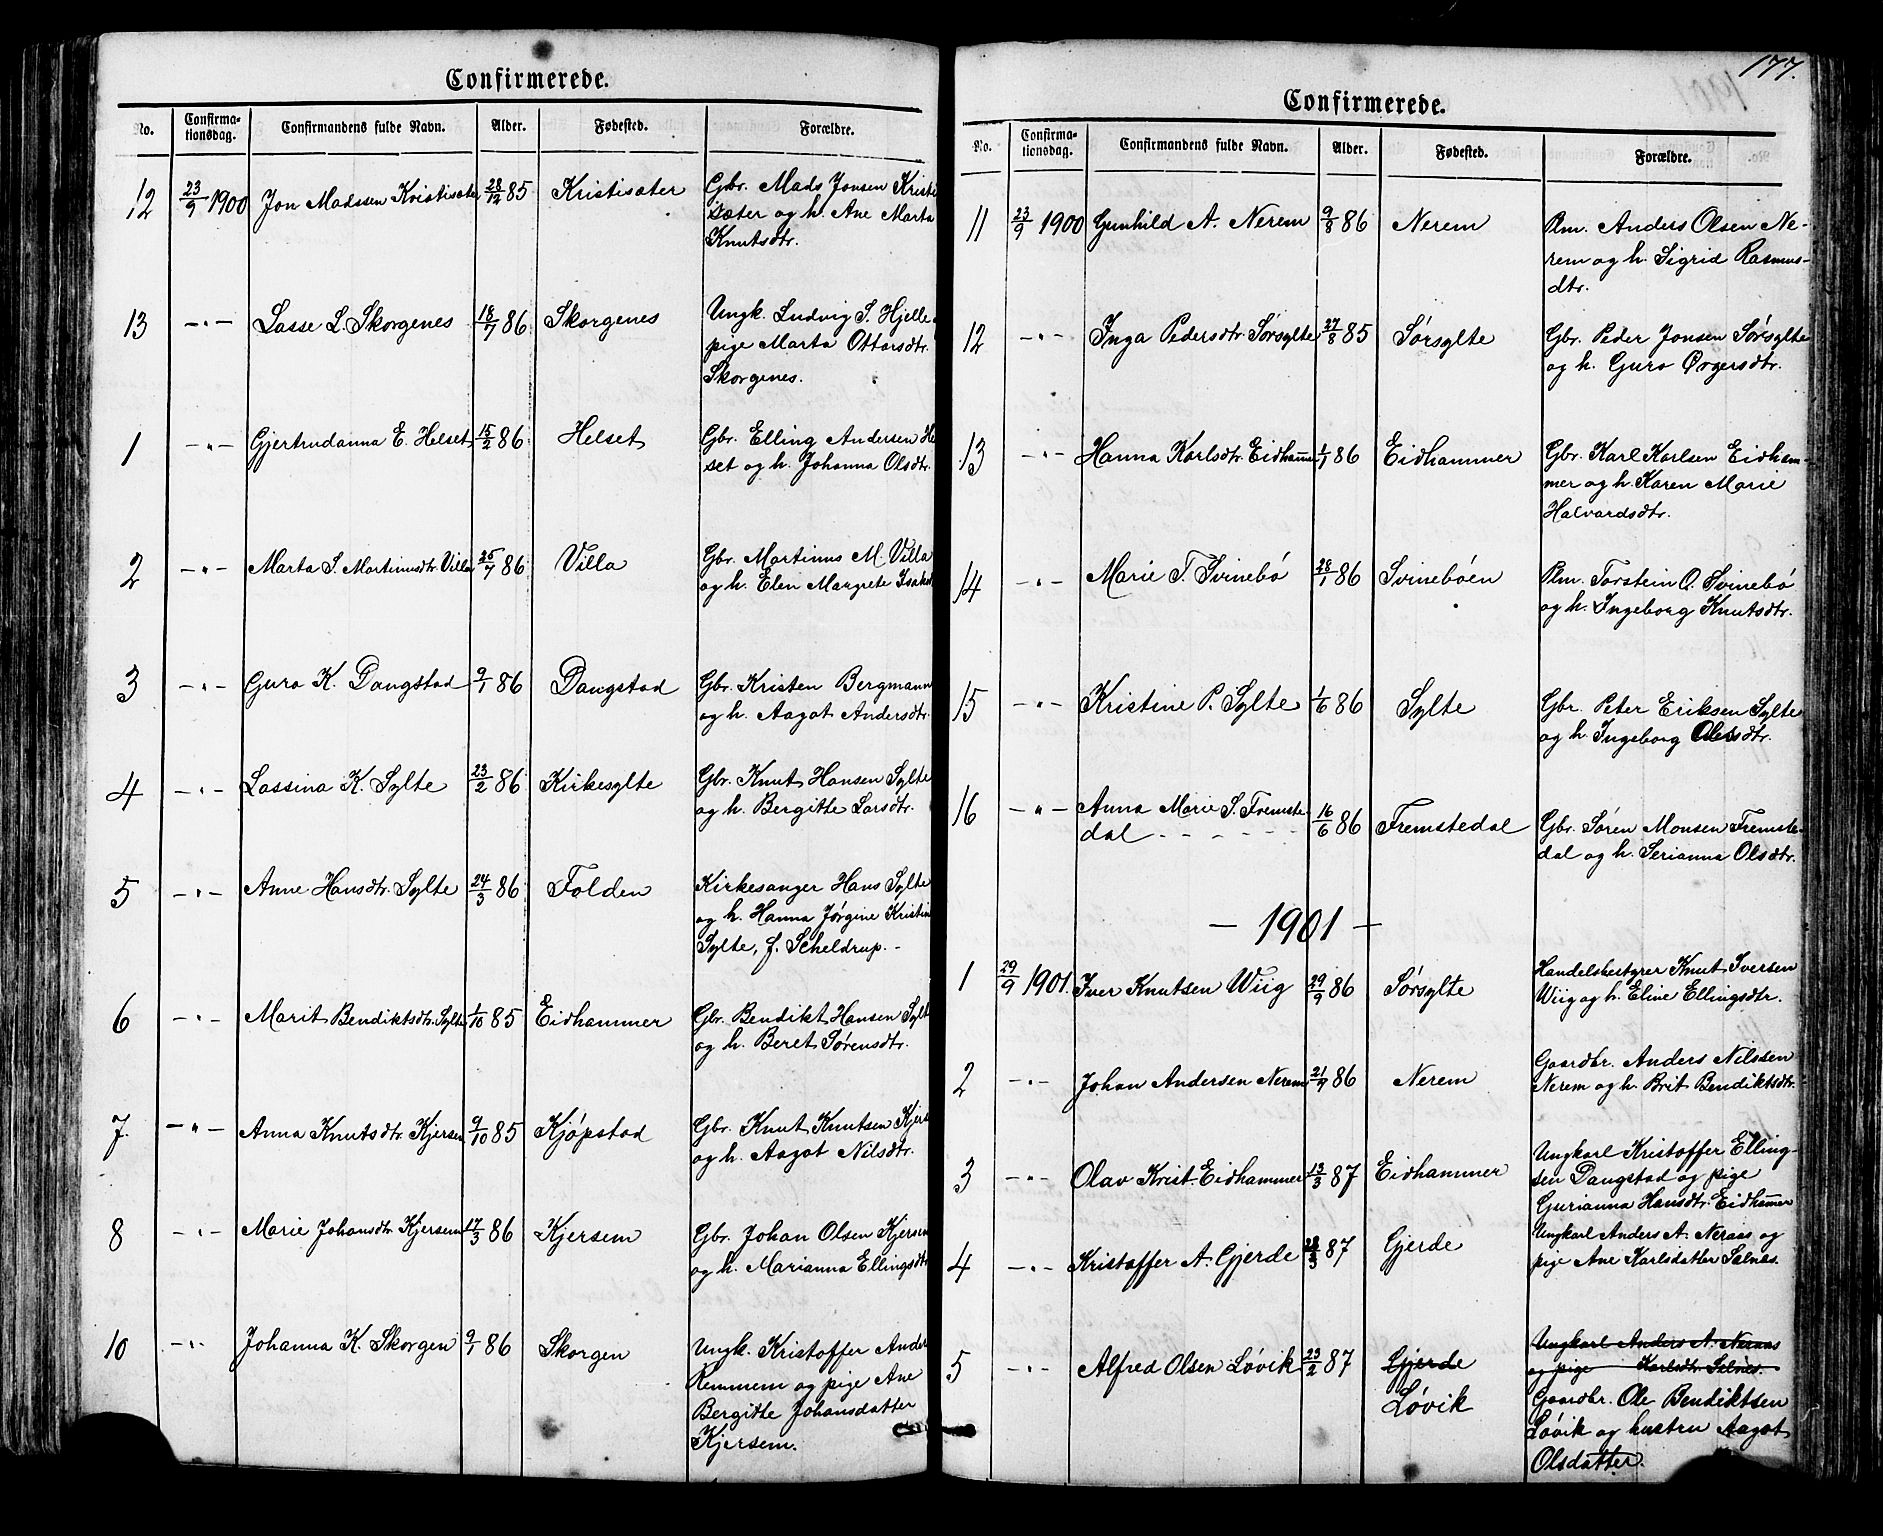 Confirmerede.
No. Confirma-tionsdag. Confirmandens fulde Navn. Alder. Fødested. Forældre.
12 23/9 1900 Jon Madssen Kristisæter 28/12 85 Kristisæter Gbr. Mads Jonsen Kristi
sæter og h. Ane Marta
Knutsdtr.
13 –"– Lasse L. Skorgenes 18/7 86 Skorgenes Ungk. Ludvig S. Hjelle
pige Marta Ottarsdtr.
Skorgenes.
1 –"– Gjertrudanna E. Helset 15/2 86 Helset Gbr. Elling Andersen He
set og h. Johanna Olsdtr.
2 –"– Marta S. Martinusdtr. Villa 25/7 86 Villa Gbr. Martinus M. Villa
og h. Elen Margrete Isaks
3 –"– Guro K. Dangstad 9/1 86 Dangstad Gbr. Kristen Bergmann
og h. Aagot Andersdtr.
4 –"– Lassina K. Sylte 23/2 86 Kirkesylte Gbr. Knut Hansen Sylte
og h. Bergitte Larsdtr.
5 –"– Anne Hansdtr. Sylte 24/3 86 Folden Kirkesanger Hans Sylte
og h. Hanna Jørgine Kristin
Sylte, f. Scheldrup. –
6 –"– Marit Bendiktsdtr. Sylte 1/10 85 Eidhammer Gbr. Bendikt Hansen Sylt
og h. Beret Sørensdtr.
7. –"– Anna Knutsdtr. Kjersem 9/10 85 Kjøpstad Gbr. Knut Knutsen Kjers
og h. Aagot Nilsdtr.
8 –"– Marie Johansdtr. Kjersem 17/3 86 Kjersem Gbr. Johan Olsen Kjersem
og h. Marianna Ellingsdtr
10 –"– Johanna K. Skorgen 9/1 86 Skorgen Ungk. Kristoffer Anders
Remmem og pige Ane
Bergitte Johansdatter
Kjersem.
177.
Confirmerede.
No. Confirma-tionsdag. Confirmandens fulde Navn. Alder. Fødested. Forældre.
11 23/9 1900 Gunhild A. Nerem 9/8 86 Nerem Plm. Anders Olsen Ne-
rem og h. Sigrid Rasmus-
dtr.
12 –"– Inga Pedersdtr. Sørsylte 27/8 85 Sørsylte Gbr. Peder Jonsen Sørsylte
og h. Guro Ørgersdtr.
13 –"– Hanna Karlsdtr. Eidhammer 1/1 86 Eidhammer Gbr. Karl Karlsen Eidham-
mer og h. Karen Marie
Halvardsdtr.
14 –"– Marie T. Svinebø 28/1 86 Svinebøen Plm. Torstein O. Svinebø
og h. Ingeborg Knutsdtr.
15 –"– Kristine P. Sylte 1/6 86 Sylte Gbr. Peter Eriksen Sylte
og h. Ingeborg Olesdtr.
16 –"– Anna Marie S. Fremste-
dal 16/6 86 Fremstedal Gbr. Søren Monsen Fremste-
dal og h. Serianna Olsdtr.
– 1901 –
1 29/9 1901. Iver Knutsen Wiig 29/9 86 Sørsylte Handelsbestyrer Knut Iversen
Wiig og h. Eline Ellingsdtr.
2 –"– Johan Andersen Nerem 21/7 86 Nerem Gaardbr. Anders Nilssen
Nerem og h. Brit Bendiktsdtr.
3 –"– Olav Krist. Eidhammer 13/3 87 Eidhammer Ungkarl Kristoffer Elling-
sen Dangstad og pige
Gurianna Hansdtr. Eidhammer
4 –"– Kristoffer A. Gjerde 28/3 87 Gjerde Ungkarl Anders A. Neraas og
pige Ane Karlsdatter Selnes.
5 –"– Alfred Olsen Løvik 23/2 87 Gjerde Ungkarl Anders A. Neraas
og pige Karlsdtr. Selnes.
Løvik Gaardbr. Ole Bendiktsen
Løvik og hustru Aagot
Olsdatter.